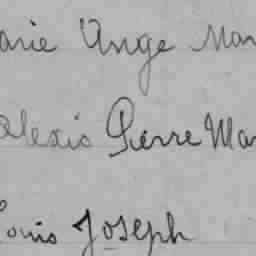 arie Ange Mar
alexis Pierre Mar
Louis Joseph